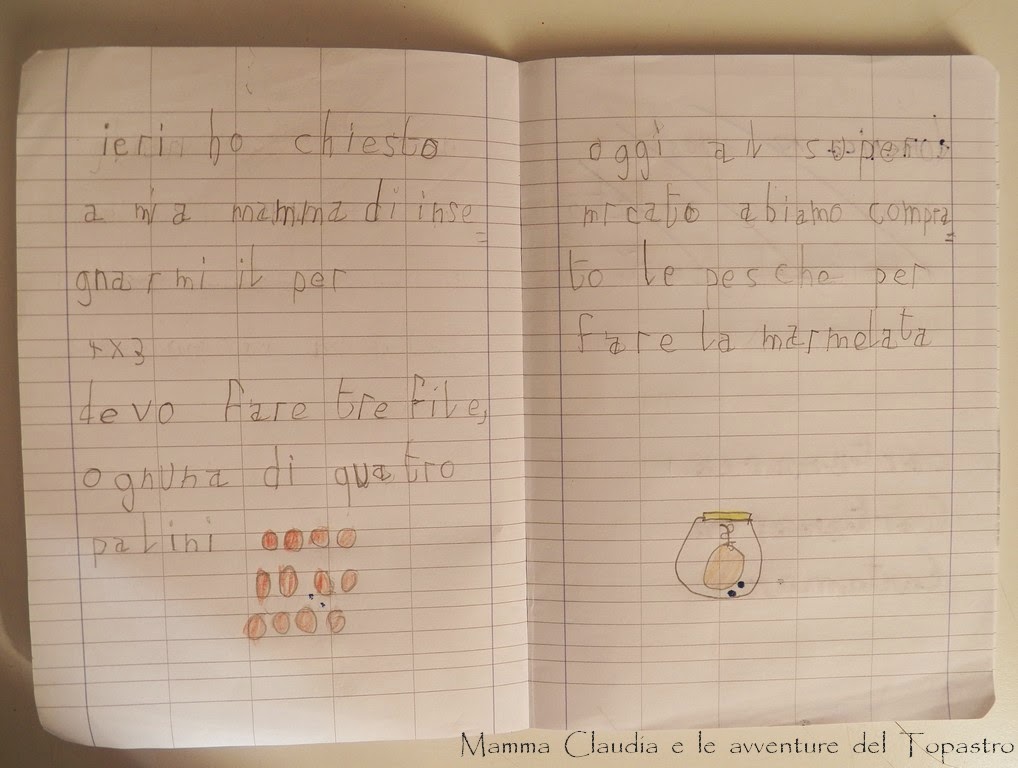 ieri ho chiesto
a mia mamma di inse=
gnarmi il per
4x3
devo fare tre file,
ognuna di quatro
palini
oggi al
mrcato abiamo compra=
to le pesche per
fare la marmelata
Mamma Claudia e le avventure del Topastro